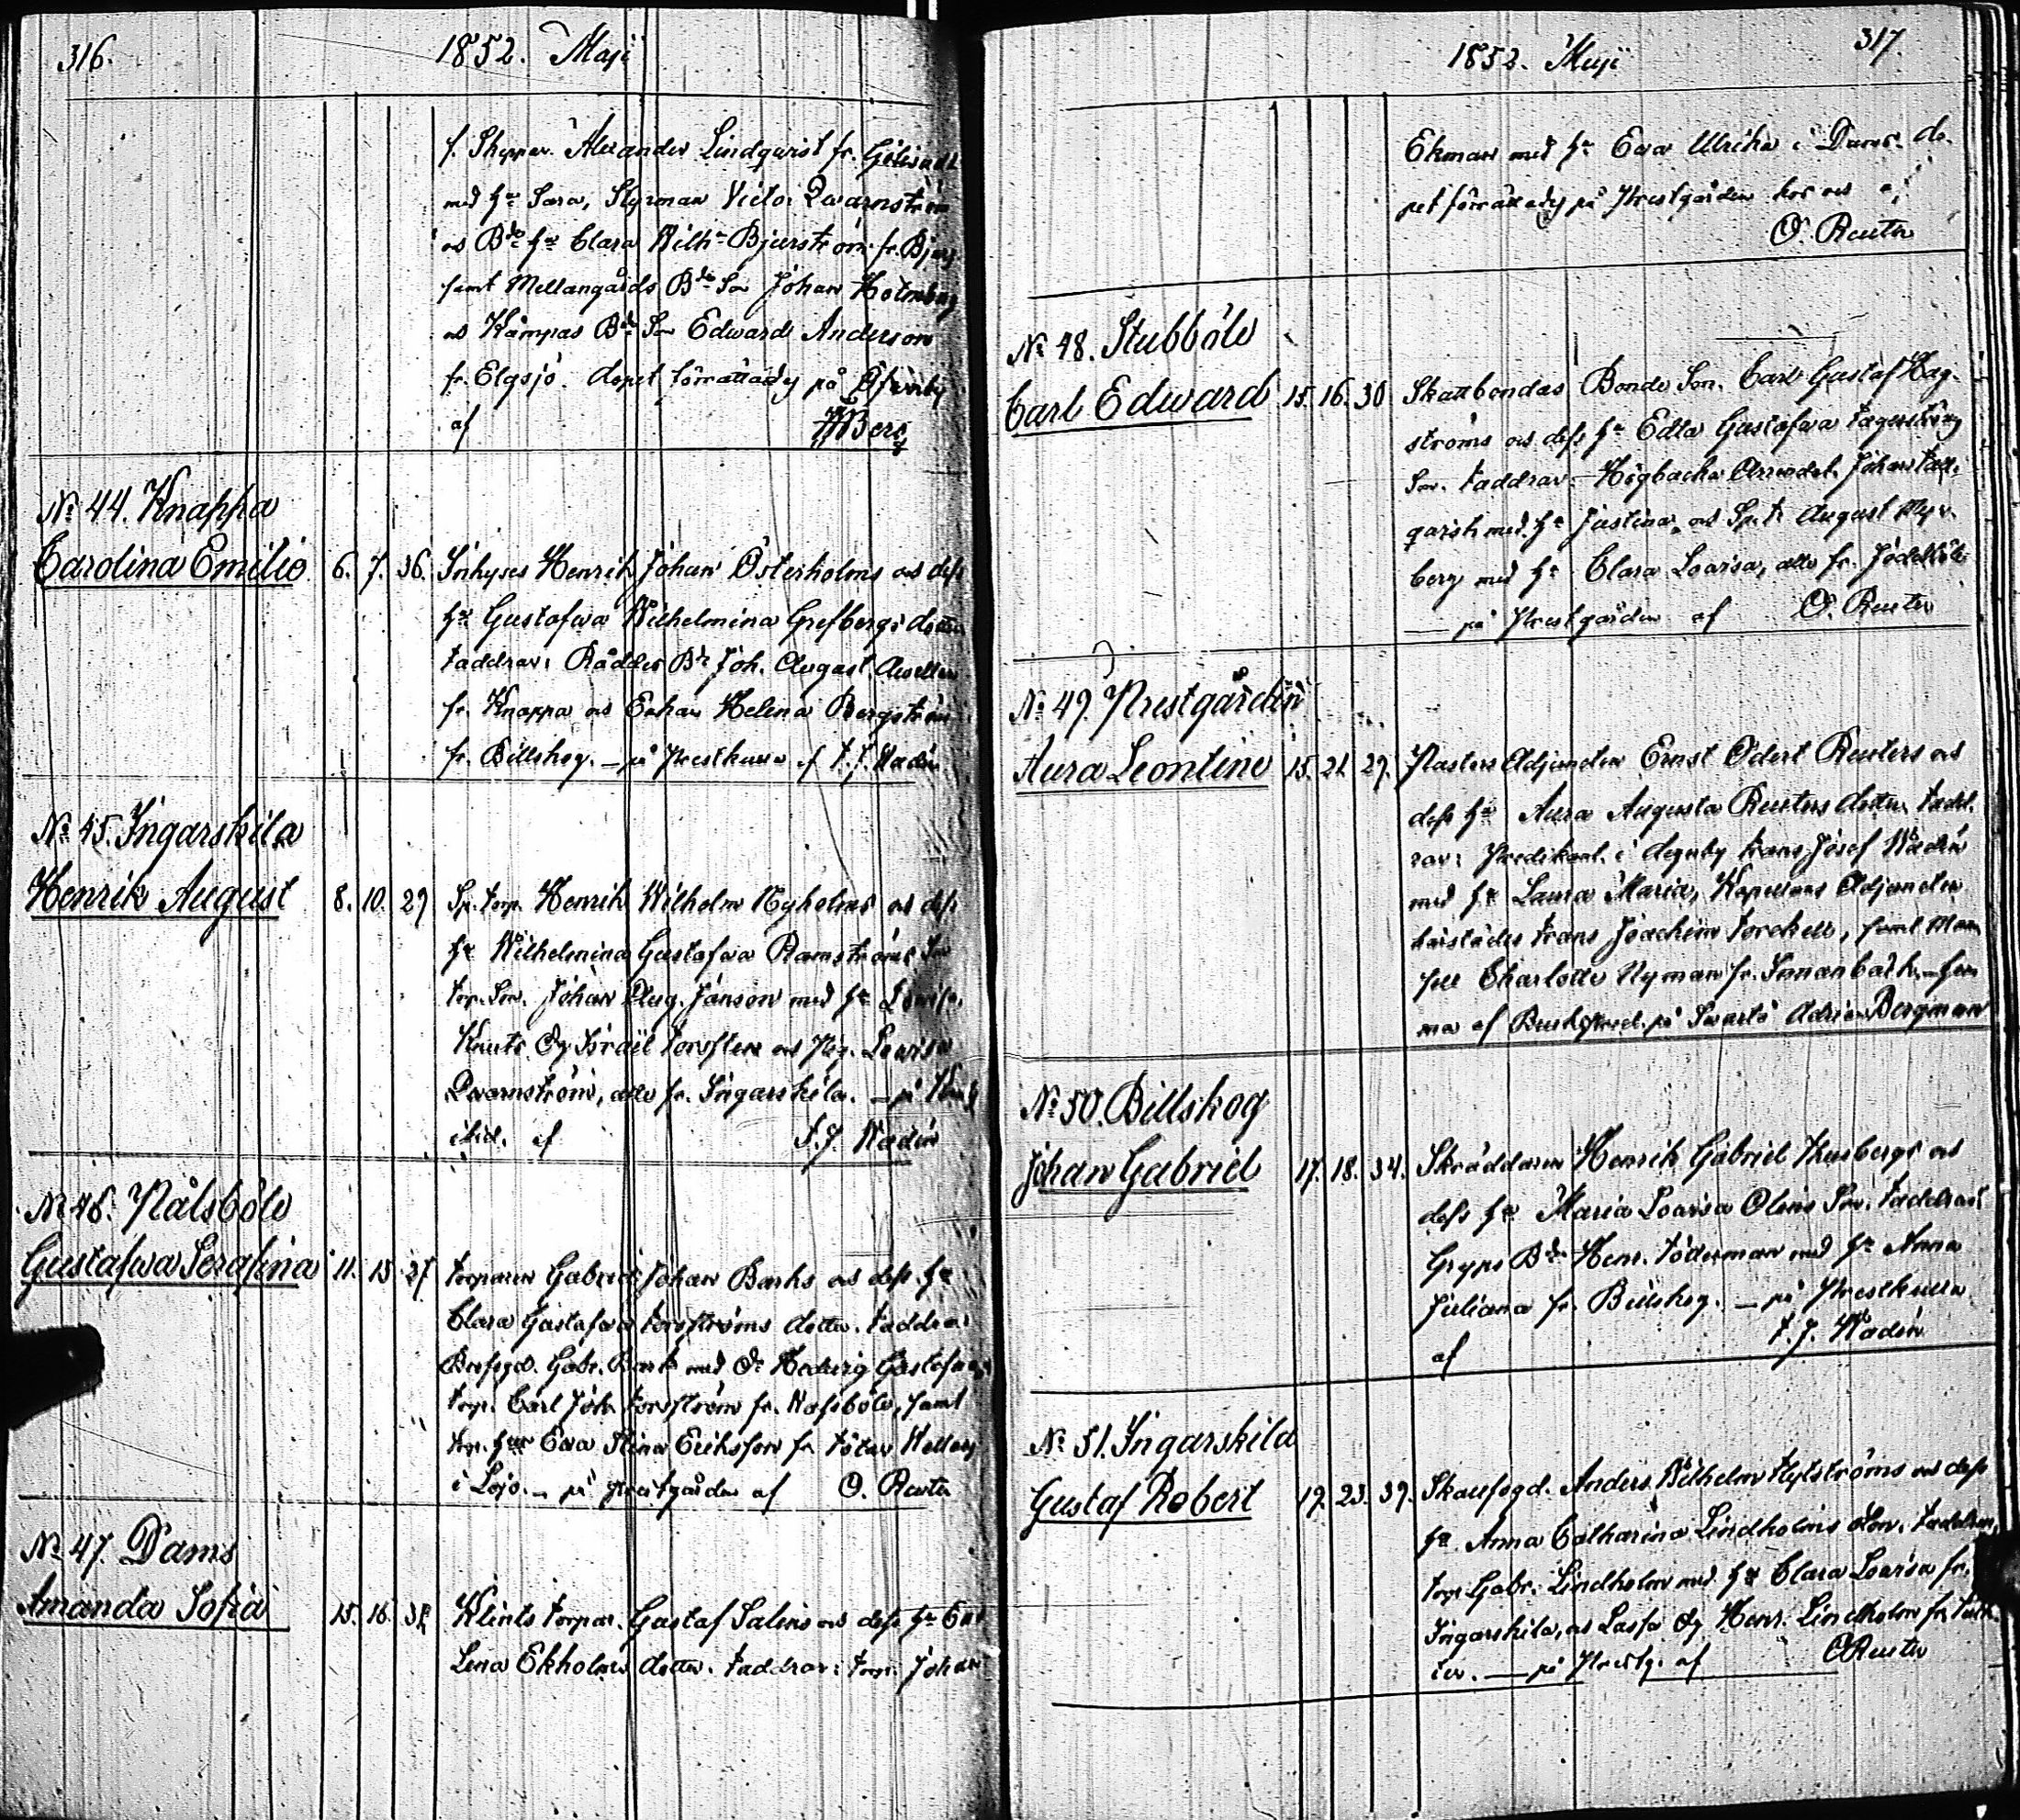 316.
1852. Maji
f. Skeppar. Alexander Lindqvist fr.
med hu Sara, Styrman Victor Qwarnström
och Bde hu Clara Wilha Bjurström fr.
samt Mellangårds Bde Son Johan Holmberg
och Kämpas Bde Son Edward Anderson
fr. Elgsjö. dopet förrättady på
af HBerg
No 44. Knappa
Carolina Emilie 6. 7. 36. Inhyses Henrik Johan Österholms och dess
hu Gustafwa Wilhelmina Grefbergs dotter
faddrar: Räddes Br Joh. August
fr. Knappa och Enkan Helena Bergström
fr. Billskog. — på Prestkulla af F. J. Wadén
No 45. Ingarskila
Henrik August 8. 10. 29 Sp. torp. Henrik Wilhelm Nyholms och dess
hu Wilhelmina Gustafwa Ramströms Son
torp. Son. Johan Aug. Janson med hu Lovisa,
Knuts Dg Israël Forssten och Pig. Lovisa
Qwarnström, alla fr. Ingarskila. — på
ibid. af F. J. Wadén
No 46. Pålsböle
Gustafwa Serafina 11. 15. 27 torparen Gabriel Johan Barks och dess hu
Clara Gustafwa Forsströms dotter. faddrar
Gabr. Bark med Hedwig Gustafwa,
torp. Carl Joh. Forsström fr. samt
torp. hu Ewa Stina Eriksson fr.
i Lojo. — på Prestgården af O. Reuter
No 47. Dams
Amanda Sofia 15. 16. Klints torpar. Gustaf Salins och dess hu
Lena Ekholms dotter. faddrar: torp. Johan
1852. Maji
317
Ekman med hu Ewa Ulrika i Dams. do-
pet förrättady på Prestgården af
O. Reuter
No 48. Stubböle
Carl Edward 15. 16. 30 Skattbondas Bonde Son. Carl Gustaf Hag-
ströms och dess hu Edla Gustafwa Fagerströms
Son. faddrar: Högbacka Arrendat. Johan
med hu Justina, och Sp. t. August
berg med hu Clara Lovisa, alla fr. Jödelböle
— på Prestgården af O. Reuter
No 49. Prestgården
Aura Leontine 15. 21. 29. Pastors Adjuncten Ernst Odert Reuters och
dess hu Aura Augusta Reuters dotter. fadd-
rar: Predikant. i Degerby Frans Josef Wadén
med hu Laura Maria, Kapellans Adjuncten
härstädes Frans Joachim Forckell, samt Mam
sell Charlotte Nyman fr. Innanbäck. — hem
ma af på Svartå Adrian Bergman
No 50. Billskog
Johan Gabriel 17. 18. 34. Skräddaren Henrik Gabriel Thusbergs och
dess hu Maria Lovisa Olins Son. faddrar
Gryps Bde Henr. Söderman med hu Anna
Juliana fr. Billskog. — på Prestkulla
af F. J. Wadén
No 51. Ingarskila
Gustaf Robert 19. 23. 39. Anders Wilhelm Flytströms och dess
hu Anna Catharina Lindholms Son. faddrar,
torp. Gabr. Lindholm med hu Clara Lovisa fr.
Ingarskila, och Dg Henr. Lindholm fr.
— på Prestg. af O Reuter